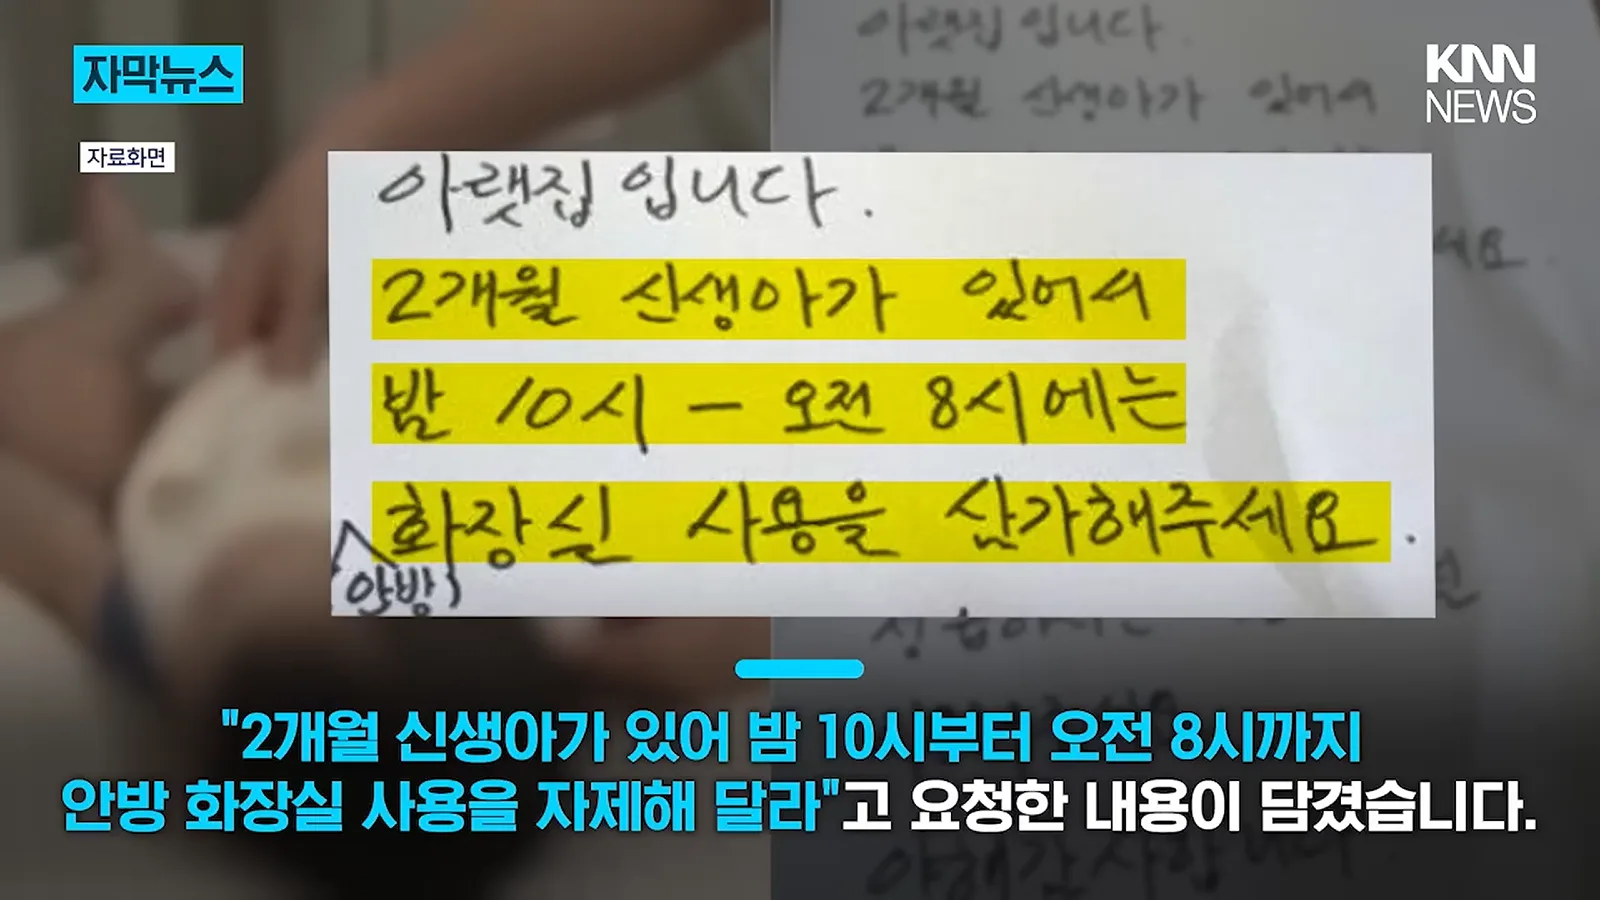 자막뉴스
KNN
NEWS
자료화면
아랫집 입니다.
2개월 신생아가 있어서
아랫집 입니다.
2개월 신생아가 있어서
밤 10시 - 오전 8시에는
화장실 사용을 삼가해주세요.
안방
"2개월 신생아가 있어 밤 10시부터 오전 8시까지
안방 화장실 사용을 자제해 달라"고 요청한 내용이 담겼습니다.